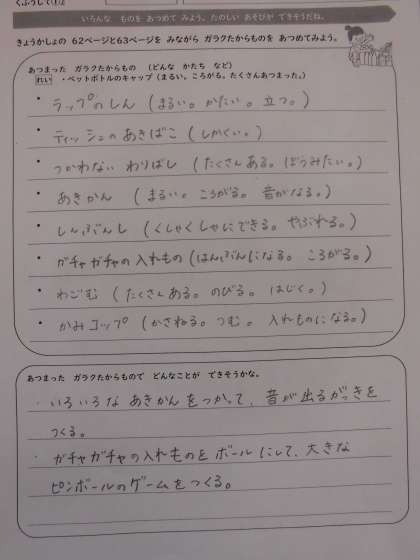 くふうして①②
いろんな ものを あつめて みよう。たのしい あそびが できそうだね。
きょうかしょの 62ページと63ページを みながら ガラクたからものを あつめてみよう。
あつまった ガラクたからもの (どんな かたち など)
れい ・ペットボトルのキャップ(まるい。ころがる。たくさんあつまった。)
・ラップのしん(まるい。かたい。立つ。)
・ティッシュのあきばこ(しかくい。)
・つかわない わりばし(たくさんある。ぼうみたい。)
・あきかん(まるい。ころがる。音がなる。)
・しんぶんし(くしゃくしゃにできる。やぶれる。)
・ガチャガチャの入れもの(はんぶんになる。ころがる。)
・わごむ(たくさんある。のびる。はじく。)
・かみコップ(かさねる。つむ。入れものになる。)
あつまった ガラクたからもので どんなことが できそうかな。
・いろいろな あきかんをつかって、音が出るがっきを
つくる。
・ガチャガチャの入れものを ボールにして、大きな
ピンボールのゲームをつくる。